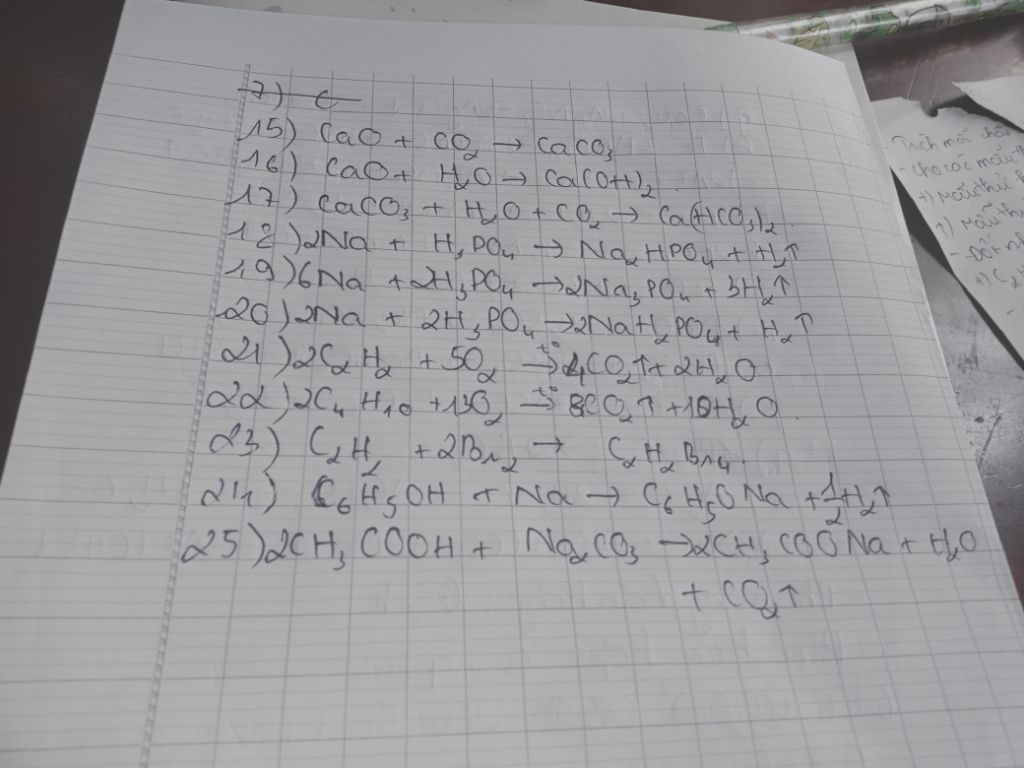 7) C
15) CaO + CO₂ → CaCO₃
16) CaO + H₂O → Ca(OH)₂.
17) CaCO₃ + H₂O + CO₂ → Ca(HCO₃)₂.
18) 2Na + H₃PO₄ → Na₂HPO₄ + H₂↑
19) 6Na + 2H₃PO₄ → 2Na₃PO₄ + 3H₂↑
20) 2Na + 2H₃PO₄ → 2NaH₂PO₄ + H₂↑
21) 2C₂H₂ + 5O₂ →(t°) 4CO₂↑ + 2H₂O
22) 2C₄H₁₀ + 13O₂ →(t°) 8CO₂↑ + 10H₂O.
23) C₂H₂ + 2Br₂ → C₂H₂Br₄.
24) C₆H₅OH + Na → C₆H₅ONa + 1/2 H₂↑
25) 2CH₃COOH + Na₂CO₃ → 2CH₃COONa + H₂O
+ CO₂↑
Trích mỗi
- Cho các mẫu
+) Mẫu thử
+) Mẫu
- Đốt